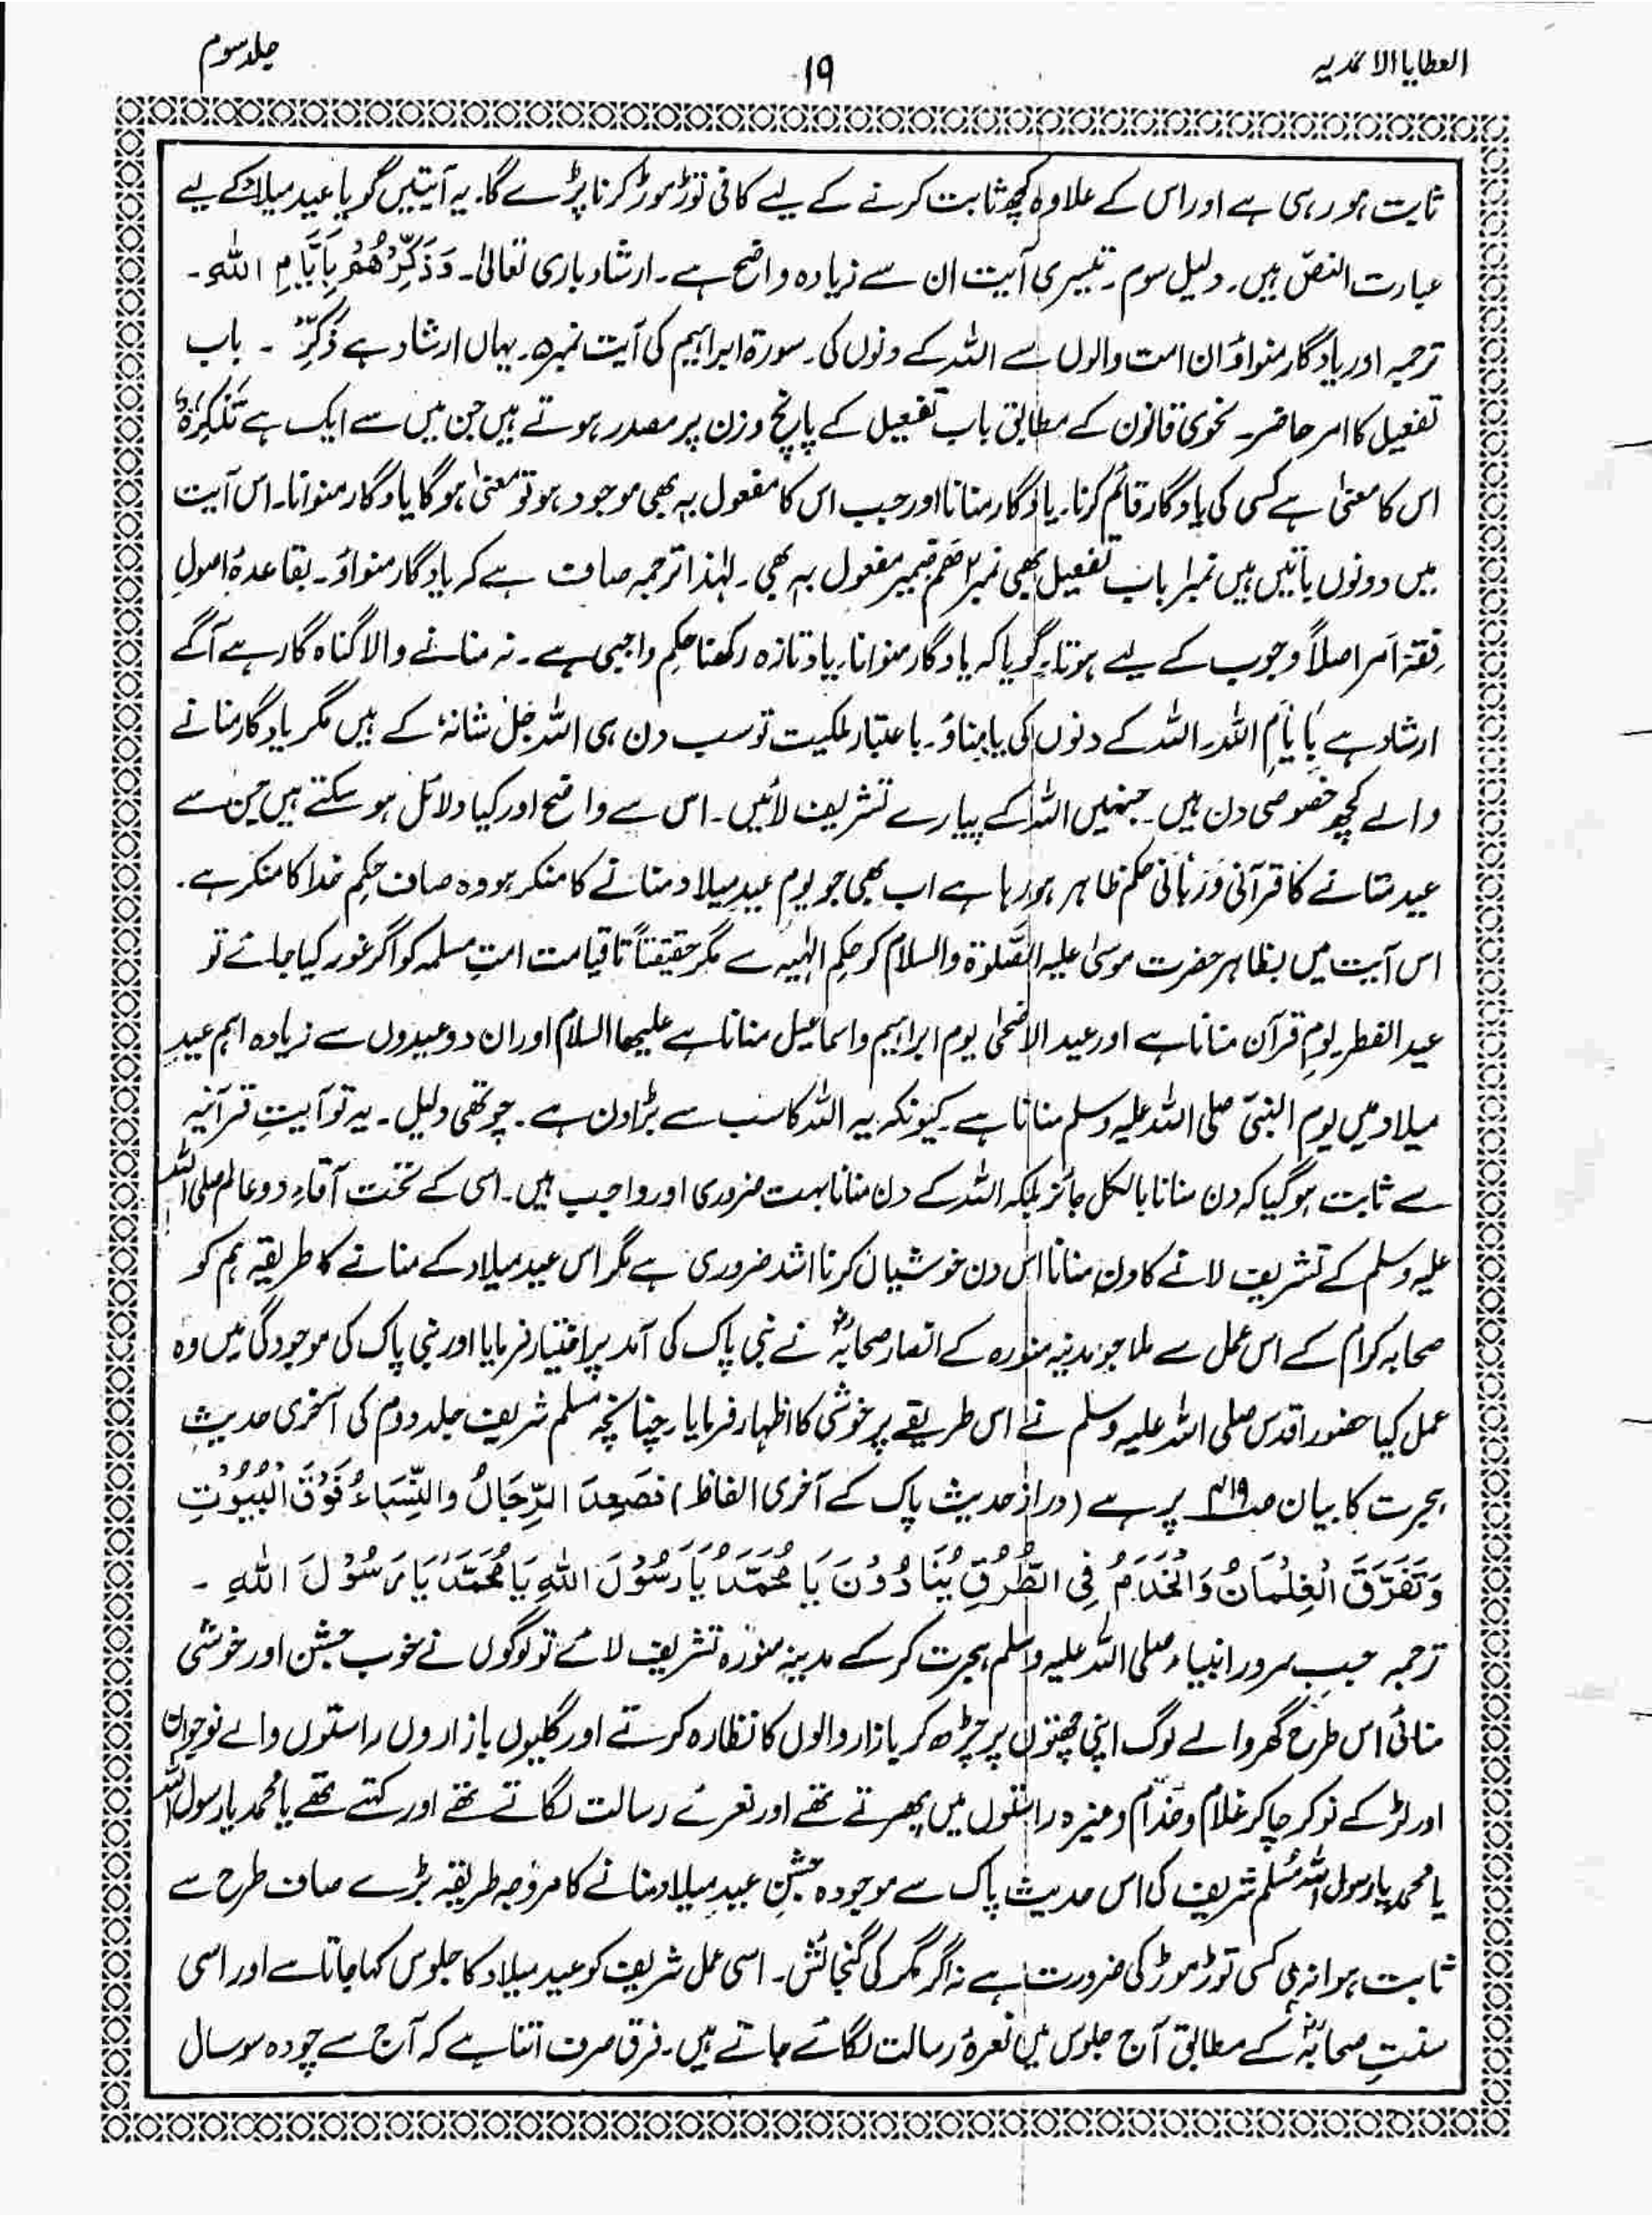 العطایا الاحمدیہ
۱۹
جلد سوم
ثابت ہو رہی ہے اور اس کے علاوہ کچھ ثابت کرنے کے لیے کافی توڑ موڑ کرنا پڑے گا۔ یہ آیتیں گویا عید میلاد کے لیے
عبارت النصّ ہیں۔ دلیل سوم۔ تیسری آیت ان سے زیادہ واضح ہے۔ ارشاد باری تعالیٰ۔ وَذَکِّرْھُمْ بِاَیَّامِ اللّٰہِ۔
ترجمہ اور یادگار منواؤ ان امت والوں سے اللہ کے دنوں کی۔ سورۃ ابراہیم کی آیت نمبر ۵۔ یہاں ارشاد ہے ذَکِّرْ ۔ باب
تفعیل کا امر حاضر۔ نحوی قانون کے مطابق باب تفعیل کے پانچ وزن پر مصدر ہوتے ہیں جن میں سے ایک ہے تَذْکِرَۃٌ
اس کا معنیٰ ہے کسی کی یادگار قائم کرنا۔ یادگار منانا اور جب اس کا مفعول بہ بھی موجود ہو تو معنیٰ ہو گا یادگار منوانا۔ اس آیت
میں دونوں باتیں ہیں نمبر۱ باب تفعیل بھی نمبر۲ ھُم ضمیر مفعول بہ بھی۔ لہٰذا ترجمہ صاف ہے کہ یادگار منواؤ۔ بقاعدۂ اصولِ
فقہ اَمر اصلاً وجوب کے لیے ہوتا۔ گویا کہ یادگار منوانا۔ یاد تازہ رکھنا حکمِ واجبی ہے۔ نہ منانے والا گناہ گار ہے آگے
ارشاد ہے بِاَیَّامِ اللہ۔ اللہ کے دنوں کی یاد مناؤ۔ باعتبار ملکیت تو سب دن ہی اللہ جل شانہٗ کے ہیں مگر یادگار منانے
والے کچھ خصوصی دن ہیں۔ جنہیں اللہ کے پیارے تشریف لائیں۔ اس سے واضح اور کیا دلائل ہو سکتے ہیں جن سے
عید منانے کا قرآنی و ربّانی حکم ظاہر ہو رہا ہے اب بھی جو یومِ عیدِ میلاد منانے کا منکر ہو وہ صاف حکمِ خدا کا منکر ہے۔
اس آیت میں بظاہر حضرت موسیٰ علیہ الصّلوٰۃ والسلام کو حکمِ الٰہیہ ہے مگر حقیقتاً تا قیامت امتِ مسلمہ کو اگر غور کیا جائے تو
عید الفطر یومِ قرآن منانا ہے اور عید الاضحیٰ یومِ ابراہیم و اسماعیل منانا ہے علیھما السلام اور ان دو عیدوں سے زیادہ اہم عیدِ
میلاد میں یوم النبیّ صلی اللہ علیہ وسلم منانا ہے۔ کیونکہ یہ اللہ کا سب سے بڑا دن ہے۔ چوتھی دلیل۔ یہ تو آیتِ قرآنیہ
سے ثابت ہو گیا کہ دن منانا بالکل جائز بلکہ اللہ کے دن منانا بہت ضروری اور واجب ہیں۔ اسی کے تحت آقاءِ دو عالم صلی اللہ
علیہ وسلم کے تشریف لانے کا دن منانا اس دن خوشیاں کرنا اشد ضروری ہے مگر اس عید میلاد کے منانے کا طریقہ ہم کو
صحابہ کرام کے اس عمل سے ملا جو مدینہ منورہ کے انصار صحابہؓ نے نبی پاک کی آمد پر اختیار فرمایا اور نبی پاک کی موجودگی میں وہ
عمل کیا حضور اقدس صلی اللہ علیہ وسلم نے اس طریقے پر خوشی کا اظہار فرمایا۔ چنانچہ مسلم شریف جلد دوم کی آخری حدیثِ
ہجرت کا بیان صـ۴۱۹ پر ہے (دراز حدیث پاک کے آخری الفاظ) فصَعِدَ الرِّجَالُ والنِّسَاءُ فَوْقَ الْبُیُوْتِ
وَتَفَرَّقَ الْغِلْمَانُ وَالْخَدَمُ فِی الطُّرُقِ یُنَادُوْنَ یَا مُحَمَّدُ یَا رَسُوْلَ اللّٰہِ یَا مُحَمَّدُ یَا رَسُوْلَ اللّٰہِ ۔
ترجمہ جب سرور انبیاء صلی اللہ علیہ وسلم ہجرت کر کے مدینہ منورہ تشریف لائے تو لوگوں نے خوب جشن اور خوشی
منائی اس طرح گھر والے لوگ اپنی چھتوں پر چڑھ کر بازار والوں کا نظارہ کرتے اور گلیوں بازاروں راستوں والے نوجوان
اور لڑکے نوکر چاکر غلام و خدّام وغیرہ راستوں میں پھرتے تھے اور نعرۓ رسالت لگاتے تھے اور کہتے تھے یا محمد یا رسول اللہ
یا محمد یا رسول اللہ مُسلم شریف کی اس حدیث پاک سے موجودہ جشنِ عیدِ میلاد منانے کا مروّجہ طریقہ بڑے صاف طرح سے
ثابت ہوا نہ ہی کسی توڑ موڑ کی ضرورت ہے نہ اگر مگر کی گنجائش۔ اسی عمل شریف کو عید میلاد کا جلوس کہا جاتا ہے اور اسی
سنتِ صحابہؓ کے مطابق آج جلوس میں نعرۂ رسالت لگائے جاتے ہیں۔ فرق صرف اتنا ہے کہ آج سے چودہ سو سال